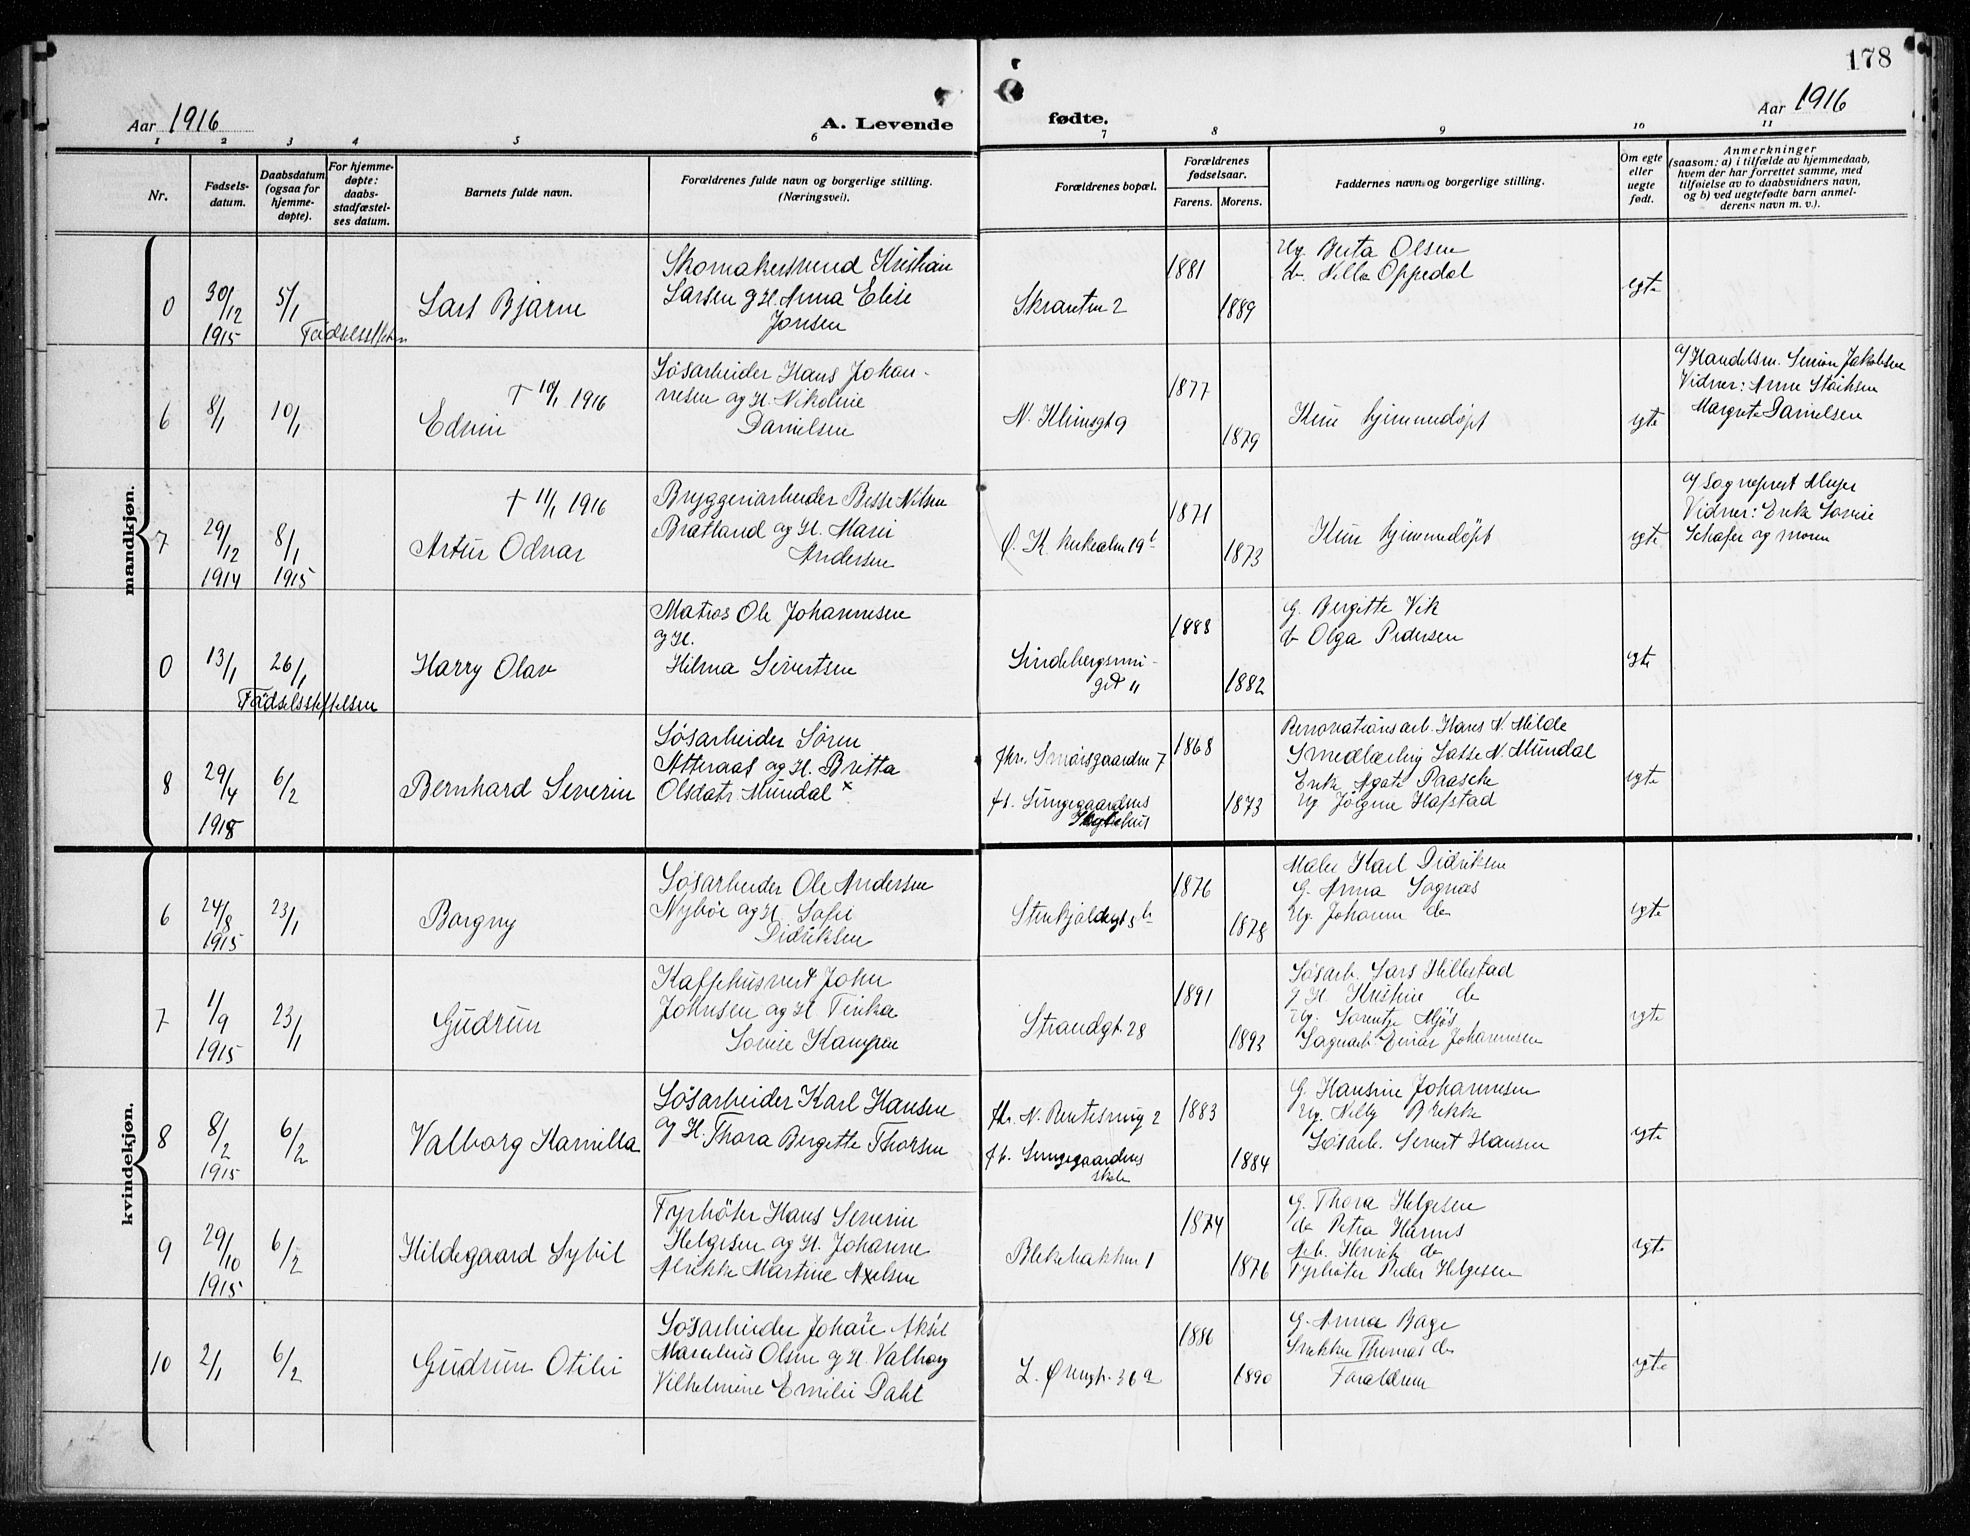 178
Aar 1916
A. Levende fødte.
Aar 1916
1 2 3 4 5 6 7 8 9 10 11
Nr.
Fødsels-
datum.
Daabsdatum
(ogsaa for
hjemme-
døpte).
For hjemme-
døpte:
daabs-
stadfæstel-
ses datum.
Barnets fulde navn.
Forældrenes fulde navn og borgerlige stilling.
(Næringsvei).
Forældrenes bopæl.
Forældrenes
fødselsaar.
Farens. Morens.
Faddernes navn og borgerlige stilling.
Om egte
eller
uegte
født.
Anmerkninger
(saasom: a) i tilfælde av hjemmedaab,
hvem der har forrettet samme, med
tilføielse av to daabsvidners navn,
og b) ved uegtefødte barn anmel-
derens navn m. v.).
mandkjøn.
0
30/12
1915
5/1
Fødselsstiftelsen
Lars Bjarne
Skomakersvend Kristian
Larsen og H. Anna Elise
Jonsen
Skranten 2
1881
1889
Ug Berta Olsen
do Nilla Oppedal
egte
6
8/1
10/1
† 10/1 1916
Edvin
Løsarbeider Hans Johan-
nesen og H. Nikoline
Danielsen
N. Klimsgt 9
1877
1879
Kun hjemmedøpt
egte
a/ Handelsm. Simon Jakobsen
Vidner: Anne
Margrete Danielsen
7
29/12
1914
8/1
1915
† 11/1 1916
Artur Odvar
Bryggeriarbeider Besse Nilsen
Bratland og H. Marie
Andersen
Ø. Kirkealm 19 b
1871
1873
Kun hjemmedøpt
egte
a/ Sogneprest Meyer
Vidner: Enke Lovise
Schafer og moren
0
13/1
26/1
Fødselsstiftelsen
Harry Olav
Matros Ole Johannesen
og H.
Hilma Sivertsen
Lindebergsmu-
get 11
1883
1882
G. Bergitte Vik
do Olga Pedersen
egte
8
29/4
1915
6/2
Bernhard Severin
Løsarbeider Søren
Atteraas og H. Britta
Olsdatr Mundal x
fhv. Smørsgaarden 7
ft. Lungegaardens
Sykehus
1868
1873
Renovationsarb. Hans N. Milde
Smedlærling Lasse N. Mundal
Enke Agate Paasche
Ug Jørgine Hafstad
egte
kvindekjøn.
6
24/8
1915
23/1
Borgny
Løsarbeider Ole Andersen
Nybøe og H. Sofie
Didriksen
Stenkjeldergt 5 b
1876
1878
Maler Karl Didriksen
G. Anna Sognæs
Ug. Johanne do
egte
7
1/9
1915
23/1
Gudrun
Kaffehusvert John
Johnsen og H. Tinka
Lovise Kampen
Strandgt. 28
1891
1893
Løsarb. Lars Hillestad
g H. Kristine do
Ug. Lorentze Mjøs
Sagarb. Einar Johannesen
egte
8
8/2
1915
6/2
Valborg Kamilla
Løsarbeider Karl Hansen
og H. Thora Bergitte Thorsen
fhv. N. Bentesmug 2
ft. Lungegaardens
skole
1883
1884
G. Hansine Johannesen
Ug. Nelly Brekke
Løsarb. Sivert Hansen
egte
9
29/10
1915
6/2
Hildegaard Sybil
Fyrbøter Hans Severin
Helgesen og H. Johanne
Alvekke Martine Axelsen
Blekebakken 1
1874
1876
G. Thora Helgesen
do Petra Harms
Arb. Henrik do
Fyrbøter Peder Helgesen
egte
10
2/1
6/2
Gudrun Otilie
Løsarbeider Johan Aksel
Marelius Olsen og H. Valborg
Vilhelmine Emilie Dahl
L. Øvregt. 36 a
1886
1890
G. Anna Bage
Snekker Thomas do
Forældrene
egte